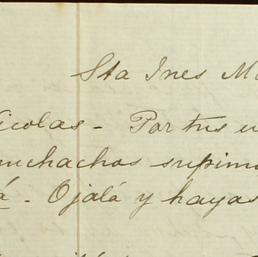 Sta Ines Ma
icolas - Por tus
muchachos supim
á. Ojalá y hayas